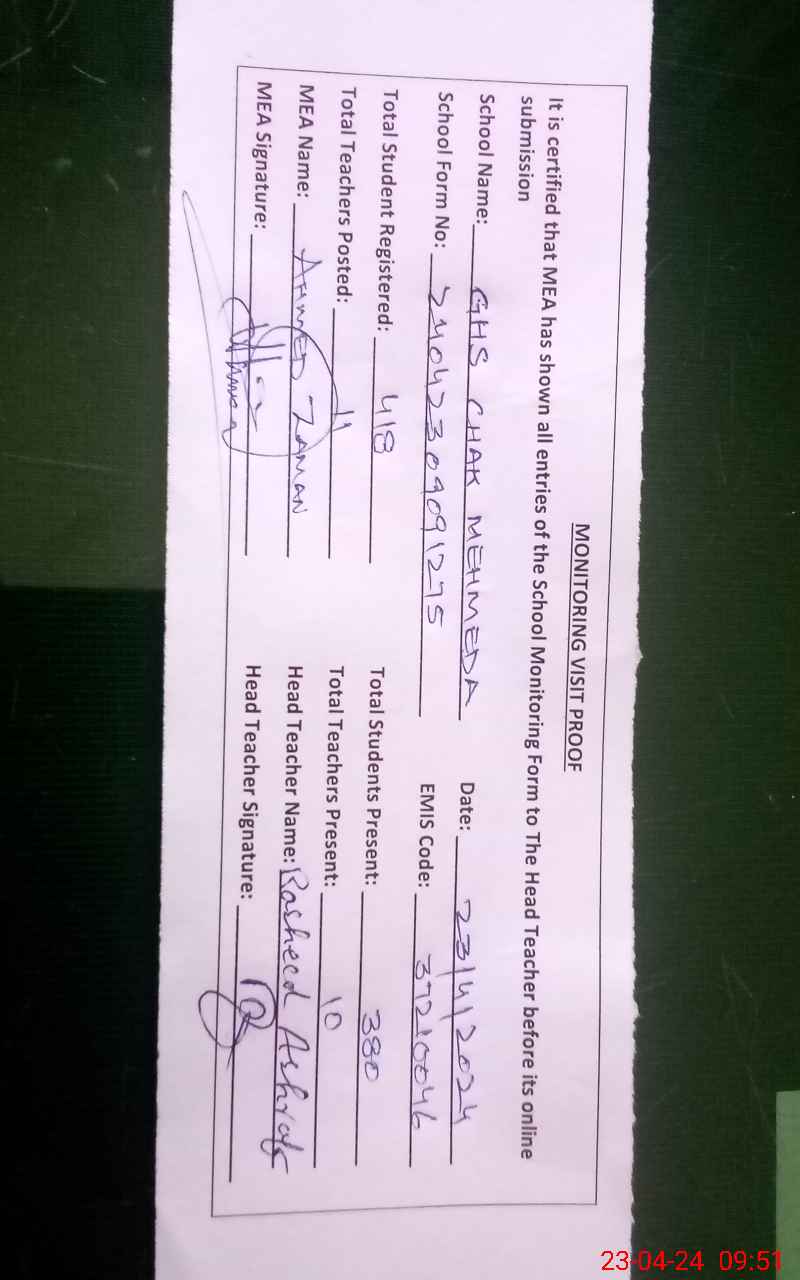 MONITORING VISIT PROOF
It is certified that MEA has shown all entries of the School Monitoring Form to The Head Teacher before its online
submission
School Name: GHS CHAK MEHMEDA Date: 23/4/2024
School Form No: 24042309091275 EMIS Code: 37210046
Total Student Registered: 418 Total Students Present: 380
Total Teachers Posted: 11 Total Teachers Present: 10
MEA Name: AHMED ZAMAN Head Teacher Name: Rasheed Ashraf
MEA Signature: Head Teacher Signature:
23-04-24 09:51